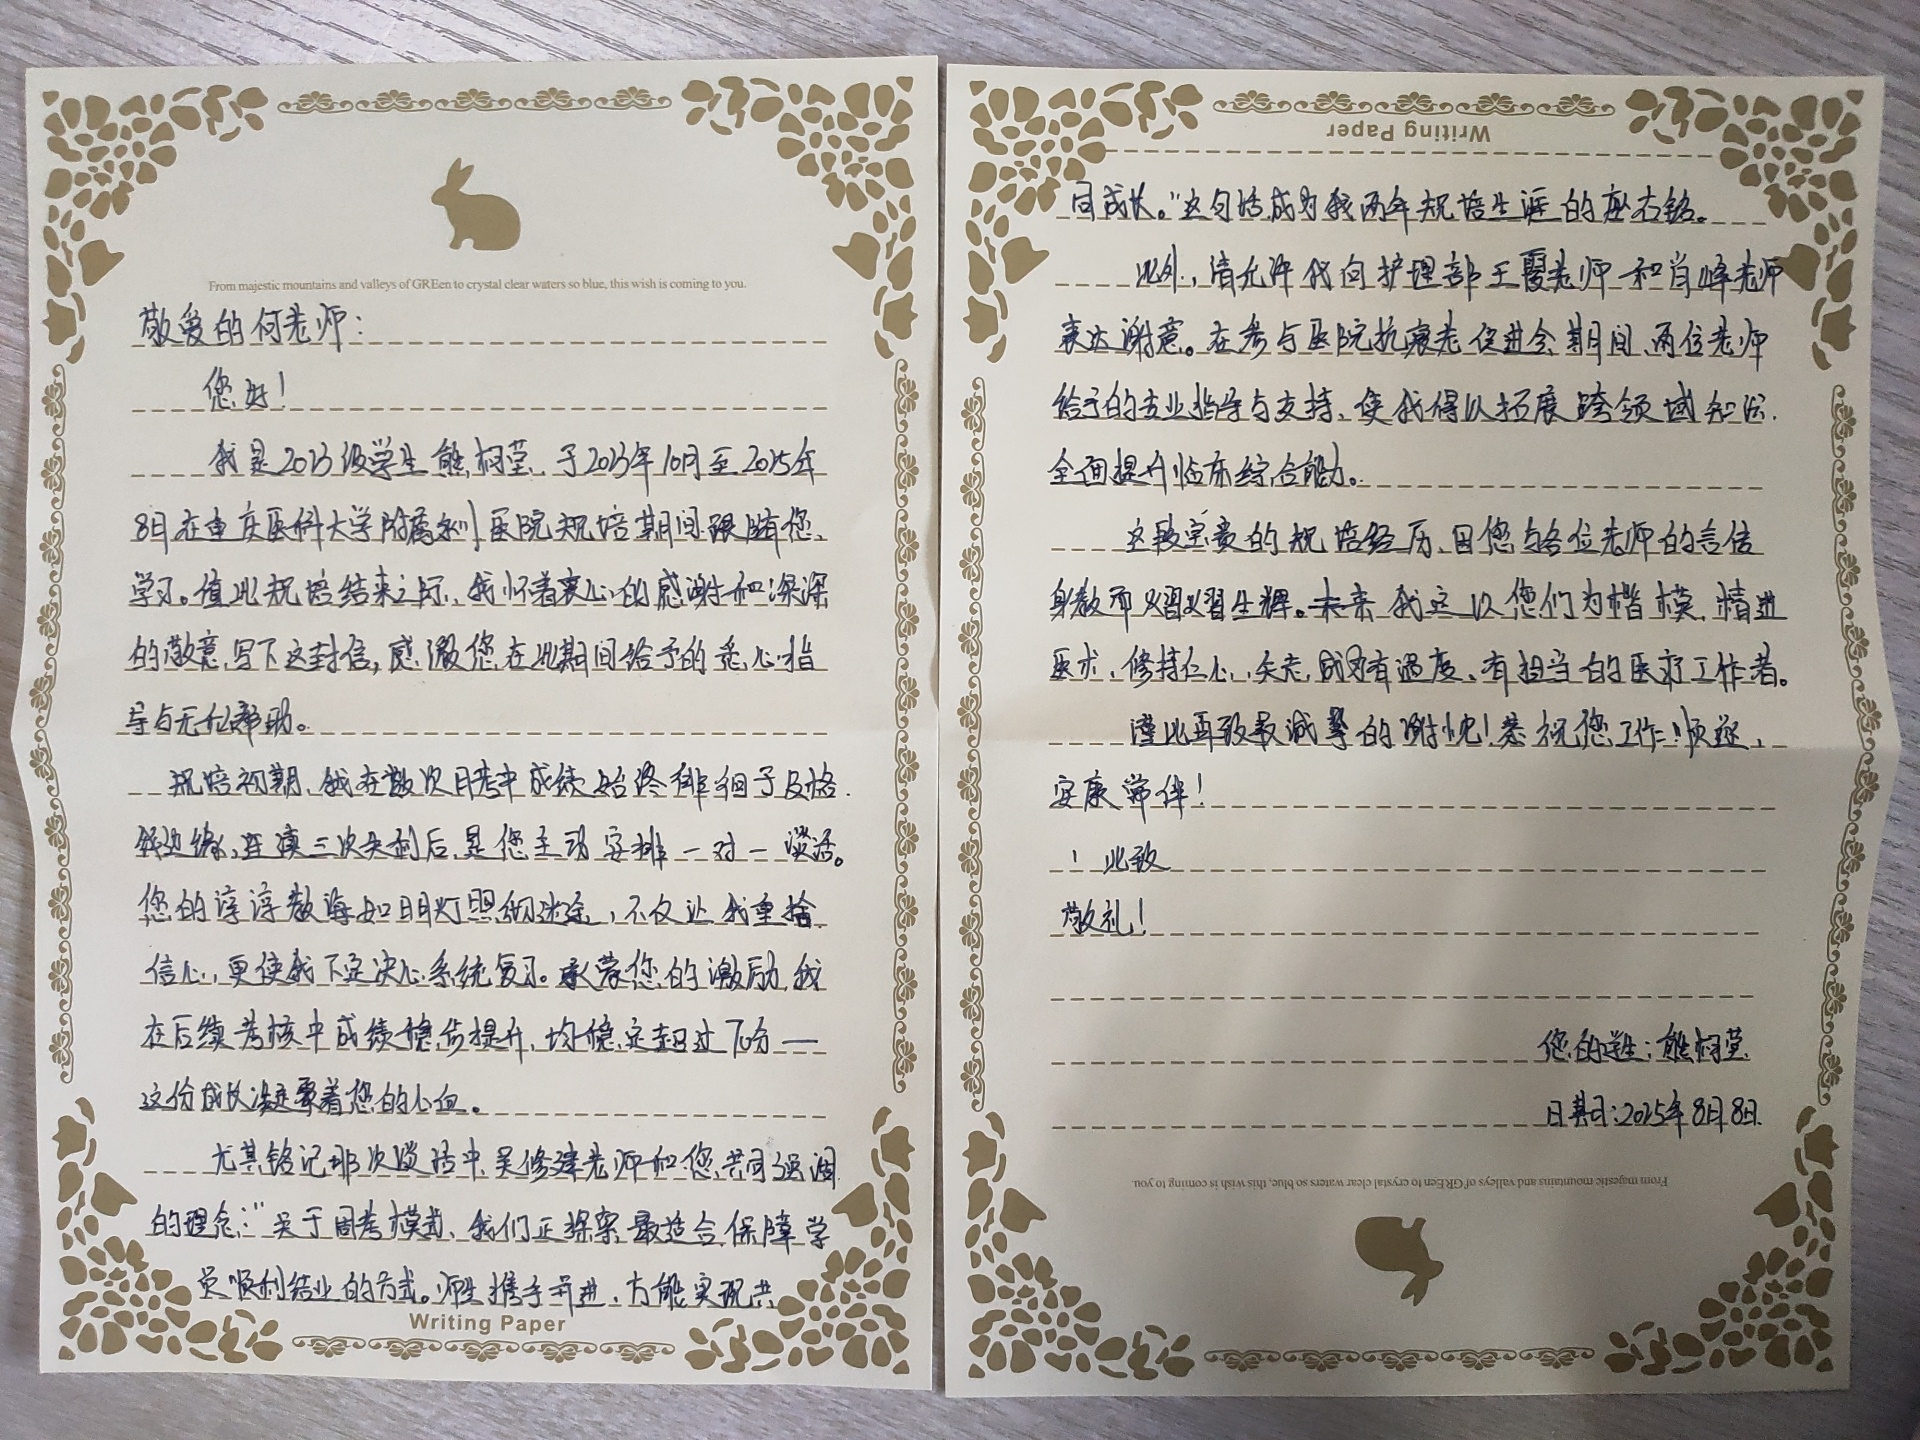 From majestic mountains and valleys of GREen to crystal clear waters so blue, this wish is coming to you.
敬爱的何老师：
您好！
我是2023级学生熊柯莹，于2023年10月至2025年
8月在重庆医科大学附属永川医院规培期间跟随您
学习。值此规培结束之际，我怀着衷心的感谢和深深
的敬意，写下这封信，感激您在此期间给予的悉心指
导与无私帮助。
规培初期，我在数次月考中成绩始终徘徊于及格
线边缘，连续三次失利后，是您主动安排一对一谈话。
您的谆谆教诲如明灯照彻迷途，不仅让我重拾
信心，更使我下定决心系统复习。承蒙您的激励，我
在后续考核中成绩稳步提升，均稳定超过70分——
这份成长凝聚着您的心血。
尤其铭记那次谈话中，吴修建老师和您共同强调
的理念：“关于周考模式，我们正探索最适合保障学
员顺利结业的方式。师生携手并进，方能实现共
Writing Paper
Writing Paper
同成长。”这句话成为我两年规培生涯的座右铭。
此外，请允许我向护理部王霞老师和肖峰老师
表达谢意。在参与医院抗衰老促进会期间，两位老师
给予的专业指导与支持，使我得以拓展跨领域知识，
全面提升临床综合能力。
这段宝贵的规培经历，因您与各位老师的言传
身教而熠熠生辉。未来，我定以您们为楷模，精进
医术，修持仁心，矢志成为有温度、有担当的医疗工作者。
谨此再致最诚挚的谢忱！恭祝您工作顺遂，
安康常伴！
此致
敬礼！
您的学生：熊柯莹
日期：2025年8月8日
From majestic mountains and valleys of GREen to crystal clear waters so blue, this wish is coming to you.